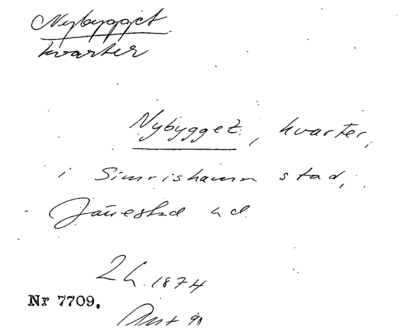 Nybygget
kvarter
Nybygget, kvarter,
i Simrishamn stad,
Järrestad hd
2 h. 1874
Nr 7709.